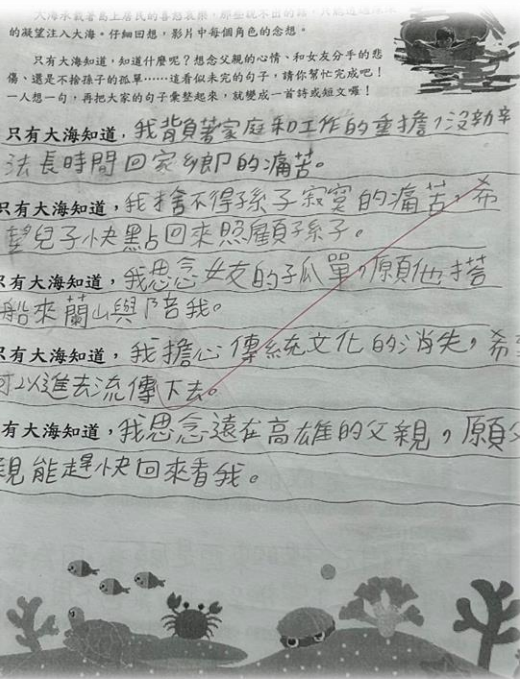 大海承載著島上居民的喜怒哀樂，那些說不出的話，只能透過
的凝望注入大海。仔細回想，影片中每個角色的念想。
只有大海知道，知道什麼呢？想念父親的心情、和女友分手的悲
傷、還是不捨孫子的孤單……這看似未完的句子，請你幫忙完成吧！
一人想一句，再把大家的句子彙整起來，就變成一首詩或短文囉！
只有大海知道，我背負著家庭和工作的重擔，沒辦
法長時間回家鄉的痛苦。
只有大海知道，我捨不得孫子寂寞的痛苦，希
望兒子快點回來照顧孫子。
只有大海知道，我思念女友的孤單，願他搭
船來蘭嶼陪我。
只有大海知道，我擔心傳統文化的消失，希
可以進去流傳下去。
有大海知道，我思念遠在高雄的父親，願父
親能趕快回來看我。